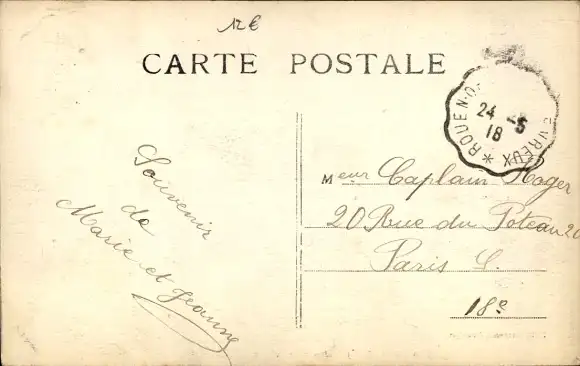 12€
CARTE POSTALE
ROUEN
EVREUX *
24 -5
18
Souvenir
de
Marie et Jeanne
Meur Caplain Roger
20 Rue du Poteau 20
Paris S.
18e